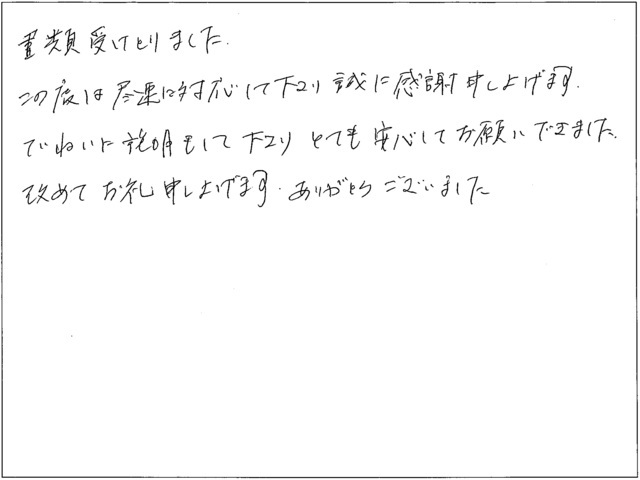 書類受けとりました。
この度は尽速に対応して下さり誠に感謝申し上げます。
ていねいに説明もして下さり とても安心してお願いできました。
改めてお礼申し上げます。ありがとうございました